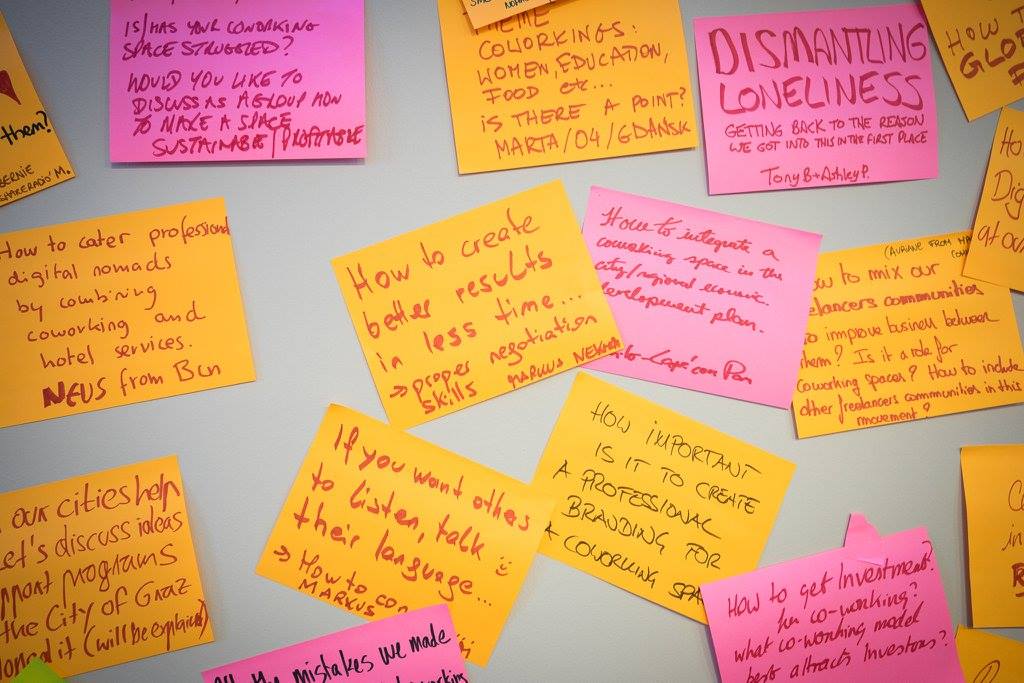 them?
BERNIE
IS/HAS YOUR COWORKING
SPACE STRUGGLED?
WOULD YOU LIKE TO
DISCUSS AS A GROUP HOW
TO MAKE A SPACE
SUSTAINABLE/PROFITABLE
COWORKINGS:
WOMEN, EDUCATION,
FOOD etc...
IS THERE A POINT?
MARTA/04/GDAŃSK
DISMANTLING
LONELINESS
GETTING BACK TO THE REASON
WE GOT INTO THIS IN THE FIRST PLACE
Tony B + Ashley P.
HOW
How to cater professional
digital nomads
by combining
coworking and
hotel services.
NEUS from Bcn
How to create
better results
in less time...
→ proper negotiation
skills MARKUS
How to integrate a
coworking space in the
city/regional economic
development plan.
to mix our
communities
to improve business between
them? Is it a role for
coworking spaces? How to include
other freelancers communities in this
movement?
our cities help
Let's discuss ideas
programs
the City of Graz
it (will be explained)
If you want others
to listen, talk
their language...
→ How to
MARKUS
HOW IMPORTANT
IS IT TO CREATE
A PROFESSIONAL
BRANDING FOR
A COWORKING
the mistakes we made
How to get Investment
for co-working?
what co-working model
best attracts Investors?